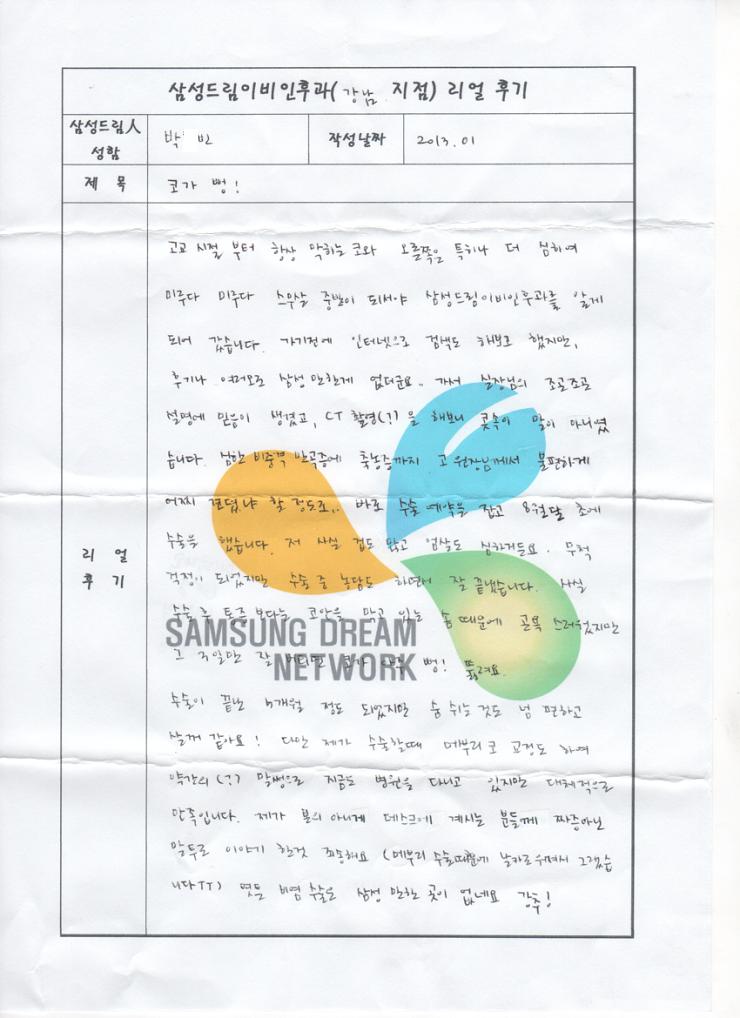 삼성드림이비인후과(강남 지점) 리얼 후기
삼성드림人 성함
박 빈
작성날짜
2013.01
제 목
코가 뻥!
리 얼
후 기
고교 시절 부터 항상 막히는 코와 오른쪽은 특히나 더 심하여
미루다 미루다 스무살 중반이 되서야 삼성드림이비인후과를 알게
되어 갔습니다. 가기전에 인터넷으로 검색도 해보고 했지만,
후기나 여러모로 삼성 만한게 없더군요.. 가서 실장님의 조곤조곤
설명에 믿음이 생겼고, CT 촬영(?)을 해보니 콧속이 말이 아니였
습니다. 심한 비중격 만곡증에 축농증까지. 고 원장님께서 불편하게
어찌 견뎠냐 할 정도로.. 바로 수술 예약을 잡고 8월달 초에
수술을 했습니다. 저 사실 겁도 많고 엄살도 심하거든요. 무척
걱정이 되었지만 수술 중 농담도 하면서 잘 끝냈습니다. 사실
수술 후 통증 보다는 코안을 막고 있는 솜 때문에 곤욕 스러웠지만
그 일만 잘 버티면 코가 뻥! 뚫려요.
수술이 끝난 5개월 정도 되었지만 숨 쉬는것도 넘 편하고
살꺼 같아요! 다만 제가 수술할때 메부리코 교정도 하여
약간의(?) 말썽으로 지금도 병원을 다니고 있지만 대체적으로
만족입니다. 제가 본의 아니게 데스크에 계시는 분들께 짜증아닌
말투로 이야기 한것 죄송해요 (메부리 수술때문에 날카로워져서 그랬습
니다TT) 옛튼 비염 수술은 삼성 만한 곳이 없네요 강추!
SAMSUNG DREAM
NETWORK